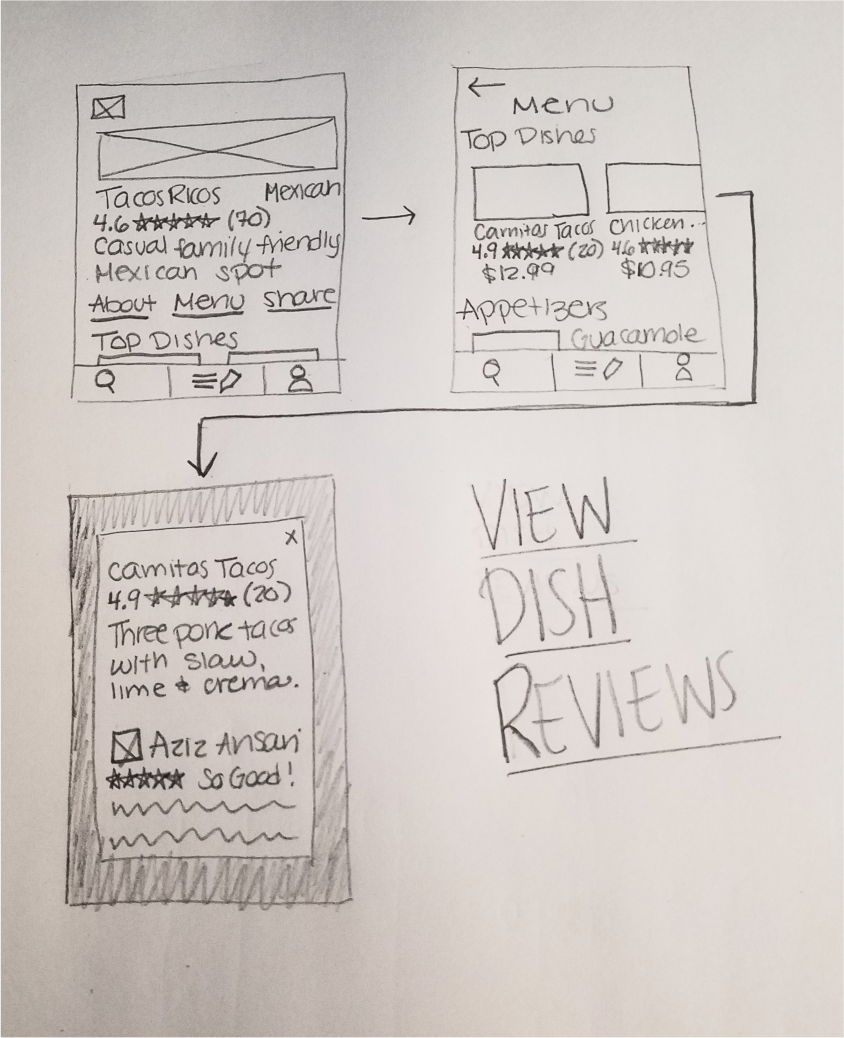 Tacos Ricos Mexican
4.6 ★★★★★ (70)
Casual family friendly
Mexican spot
About Menu share
Top Dishes
← Menu
Top Dishes
Carnitas Tacos Chicken...
4.9 ★★★★★ (20) 4.6 ★★★★★
$12.99 $10.95
Appetizers
Guacamole
x
Carnitas Tacos
4.9 ★★★★★ (20)
Three pork tacos
with slaw,
lime & crema.
Aziz Ansari
★★★★★ So Good!
VIEW
DISH
REVIEWS